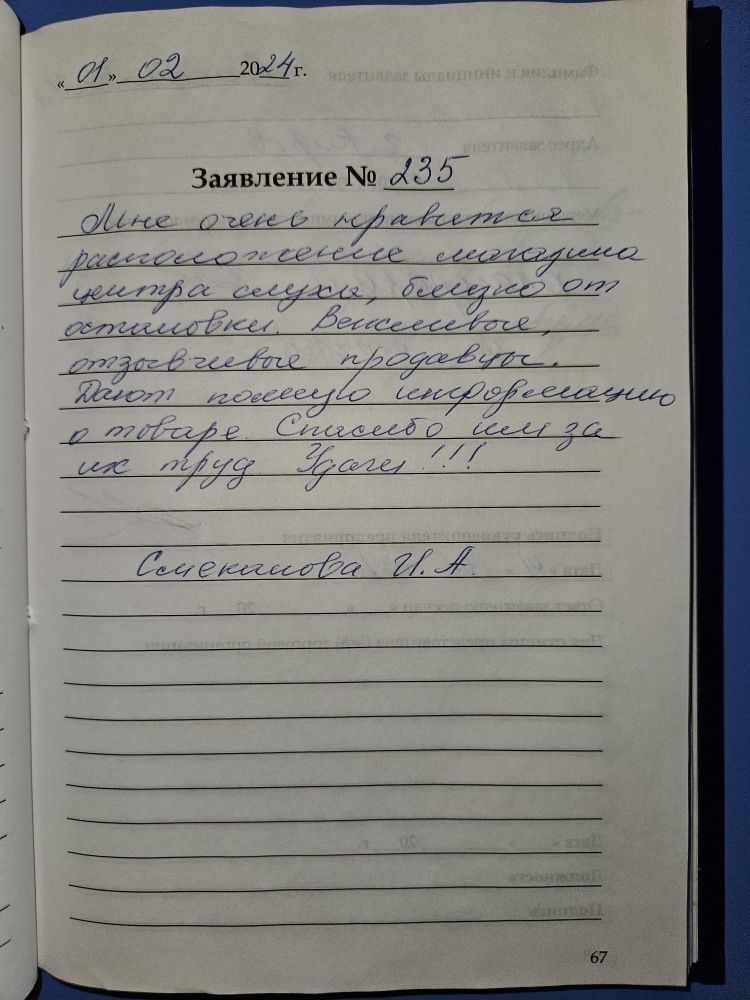 «01» 02 2024 г.
Заявление № 235
Мне очень нравится
расположение магазина
центра слуха, близко от
остановки. Вежливые,
отзывчивые продавцы.
Дают полную информацию
о товаре. Спасибо им за
их труд Удачи!!!
Смеканова И.А.
67